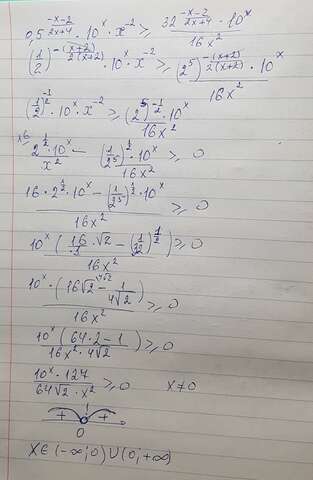 0,5^(-x-2)/(2x+4) · 10^x · x^-2 ≥ 32^(-x-2)/(2x+4) · 10^x / 16x^2
(1/2)^-(x+2)/2(x+2) · 10^x · x^-2 ≥ (2^5)^-(x+2)/2(x+2) · 10^x / 16x^2
(1/2)^-1/2 · 10^x · x^-2 ≥ (2^5)^-1/2 · 10^x / 16x^2
2^1/2 · 10^x / x^2 - (1/2^5)^1/2 · 10^x / 16x^2 ≥ 0
16 · 2^1/2 · 10^x - (1/2^5)^1/2 · 10^x / 16x^2 ≥ 0
10^x (16/1 · √2 - (1/32)^1/2) / 16x^2 ≥ 0
10^x · (16√2 - 1/4√2) / 16x^2 ≥ 0
10^x (64 · 2 - 1) / 16x^2 · 4√2 ≥ 0
10^x · 127 / 64√2 · x^2 ≥ 0 x ≠ 0
+ +
0
x ∈ (-∞; 0) ∪ (0; +∞)